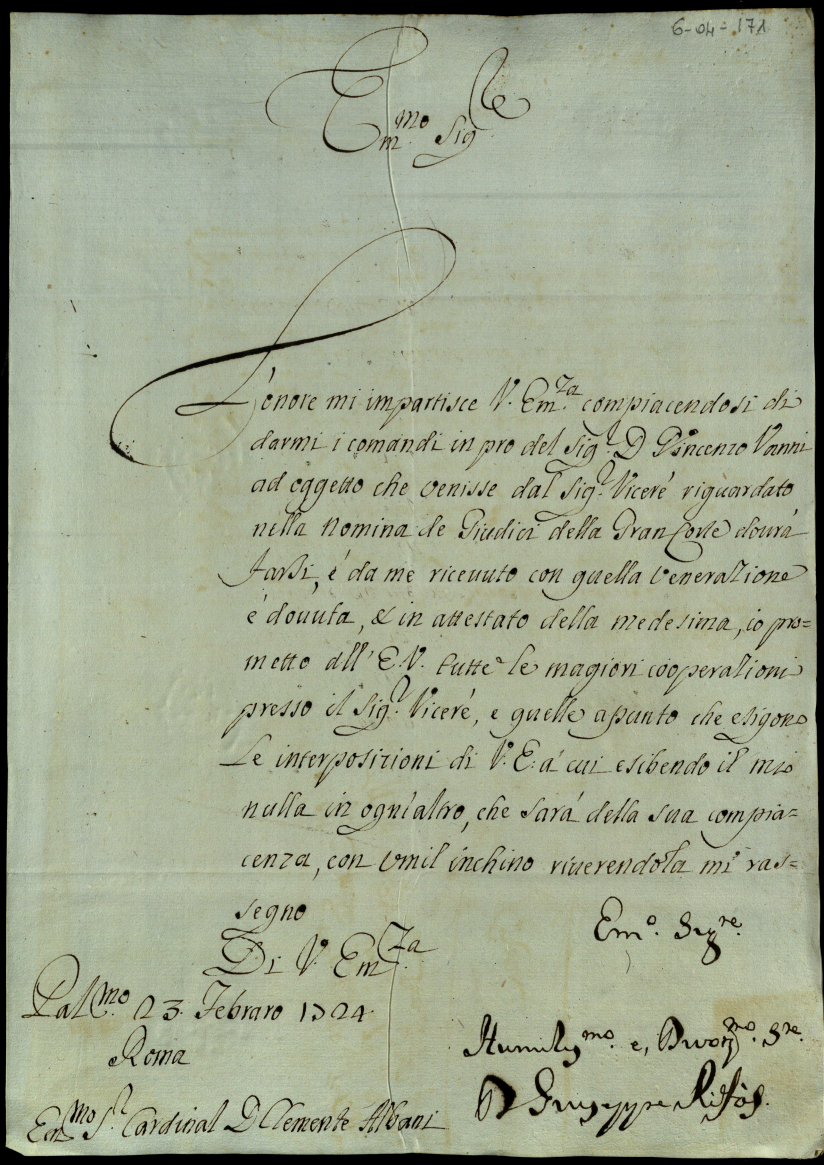 6-04-171
Em.mo Sig.re
L'onore mi impartisce V. Em.za compiacendosi di
darmi i comandi in pro del Sig.r D Vincenzo Vanni
ad oggetto che venisse dal Sig.r Viceré riguardato
nella Nomina de Giudici della Gran Corte dourá
farsi, é da me riceuuto con quella Venerazione
é douuta, & in attestato della medesima, io pro=
metto all' E.V. tutte le magiori cooperazioni
presso il Sig.r Viceré, e quelle apunto che esigono
Le interposizioni di V.E. á cui esibendo il mio
nulla in ogni altro, che sará della sua compia=
cenza, con Vmil inchino riuerendola mi ras=
segno
Di V. Em.za
Em.o Sig.re
Pal.mo 23 Febraro 1724
Roma
Humiliss.mo e, Deuot.mo S.re
Em.mo S.r Cardinal D Clemente Albani
D Giuseppe